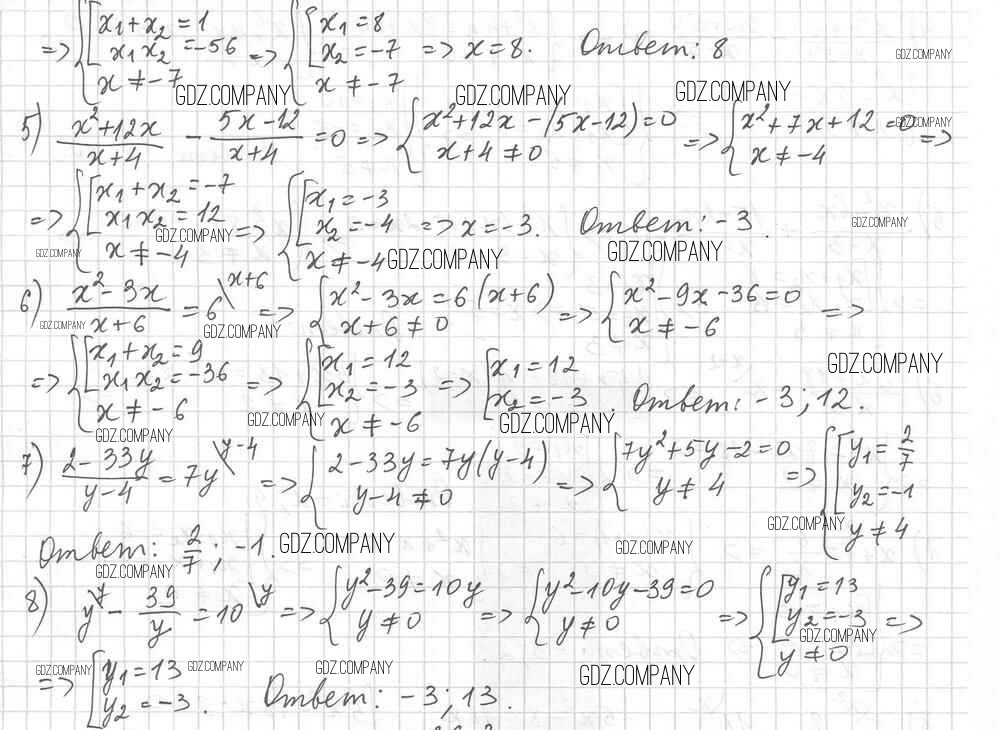 => { [ x₁ + x₂ = 1 => { [ x₁ = 8
x₁x₂ = -56 x₂ = -7 => x = 8. Ответ: 8
x ≠ -7 x ≠ -7
GDZ.COMPANY
GDZ.COMPANY GDZ.COMPANY GDZ.COMPANY
5) (x²+12x)/(x+4) - (5x-12)/(x+4) = 0 => { x²+12x-(5x-12)=0 => { x²+7x+12=0 =>
x+4 ≠ 0 x ≠ -4
GDZ.COMPANY
=> { [ x₁ + x₂ = -7 => { [ x₁ = -3
x₁x₂ = 12 x₂ = -4 => x = -3. Ответ: -3.
x ≠ -4 x ≠ -4
GDZ.COMPANY GDZ.COMPANY
GDZ.COMPANY GDZ.COMPANY GDZ.COMPANY
6) (x²-3x)/(x+6) = 6 \x+6 => { x²-3x = 6(x+6) => { x²-9x-36=0 =>
x+6 ≠ 0 x ≠ -6
GDZ.COMPANY GDZ.COMPANY
=> { [ x₁ + x₂ = 9 => { [ x₁ = 12 => [ x₁ = 12
x₁x₂ = -36 x₂ = -3 x₂ = -3. Ответ: -3; 12.
x ≠ -6 x ≠ -6
GDZ.COMPANY
GDZ.COMPANY GDZ.COMPANY GDZ.COMPANY
7) (2-33y)/(y-4) = 7y \y-4 => { 2-33y = 7y(y-4) => { 7y²+5y-2=0 => { [ y₁ = 2/7
y-4 ≠ 0 y ≠ 4 y₂ = -1
y ≠ 4
GDZ.COMPANY
Ответ: 2/7; -1. GDZ.COMPANY GDZ.COMPANY
GDZ.COMPANY
8) y \y - 39/y = 10 \y => { y²-39=10y => { y²-10y-39=0 => { [ y₁ = 13
y ≠ 0 y ≠ 0 y₂ = -3 =>
y ≠ 0
GDZ.COMPANY
GDZ.COMPANY GDZ.COMPANY GDZ.COMPANY GDZ.COMPANY
=> [ y₁ = 13
y₂ = -3. Ответ: -3; 13.